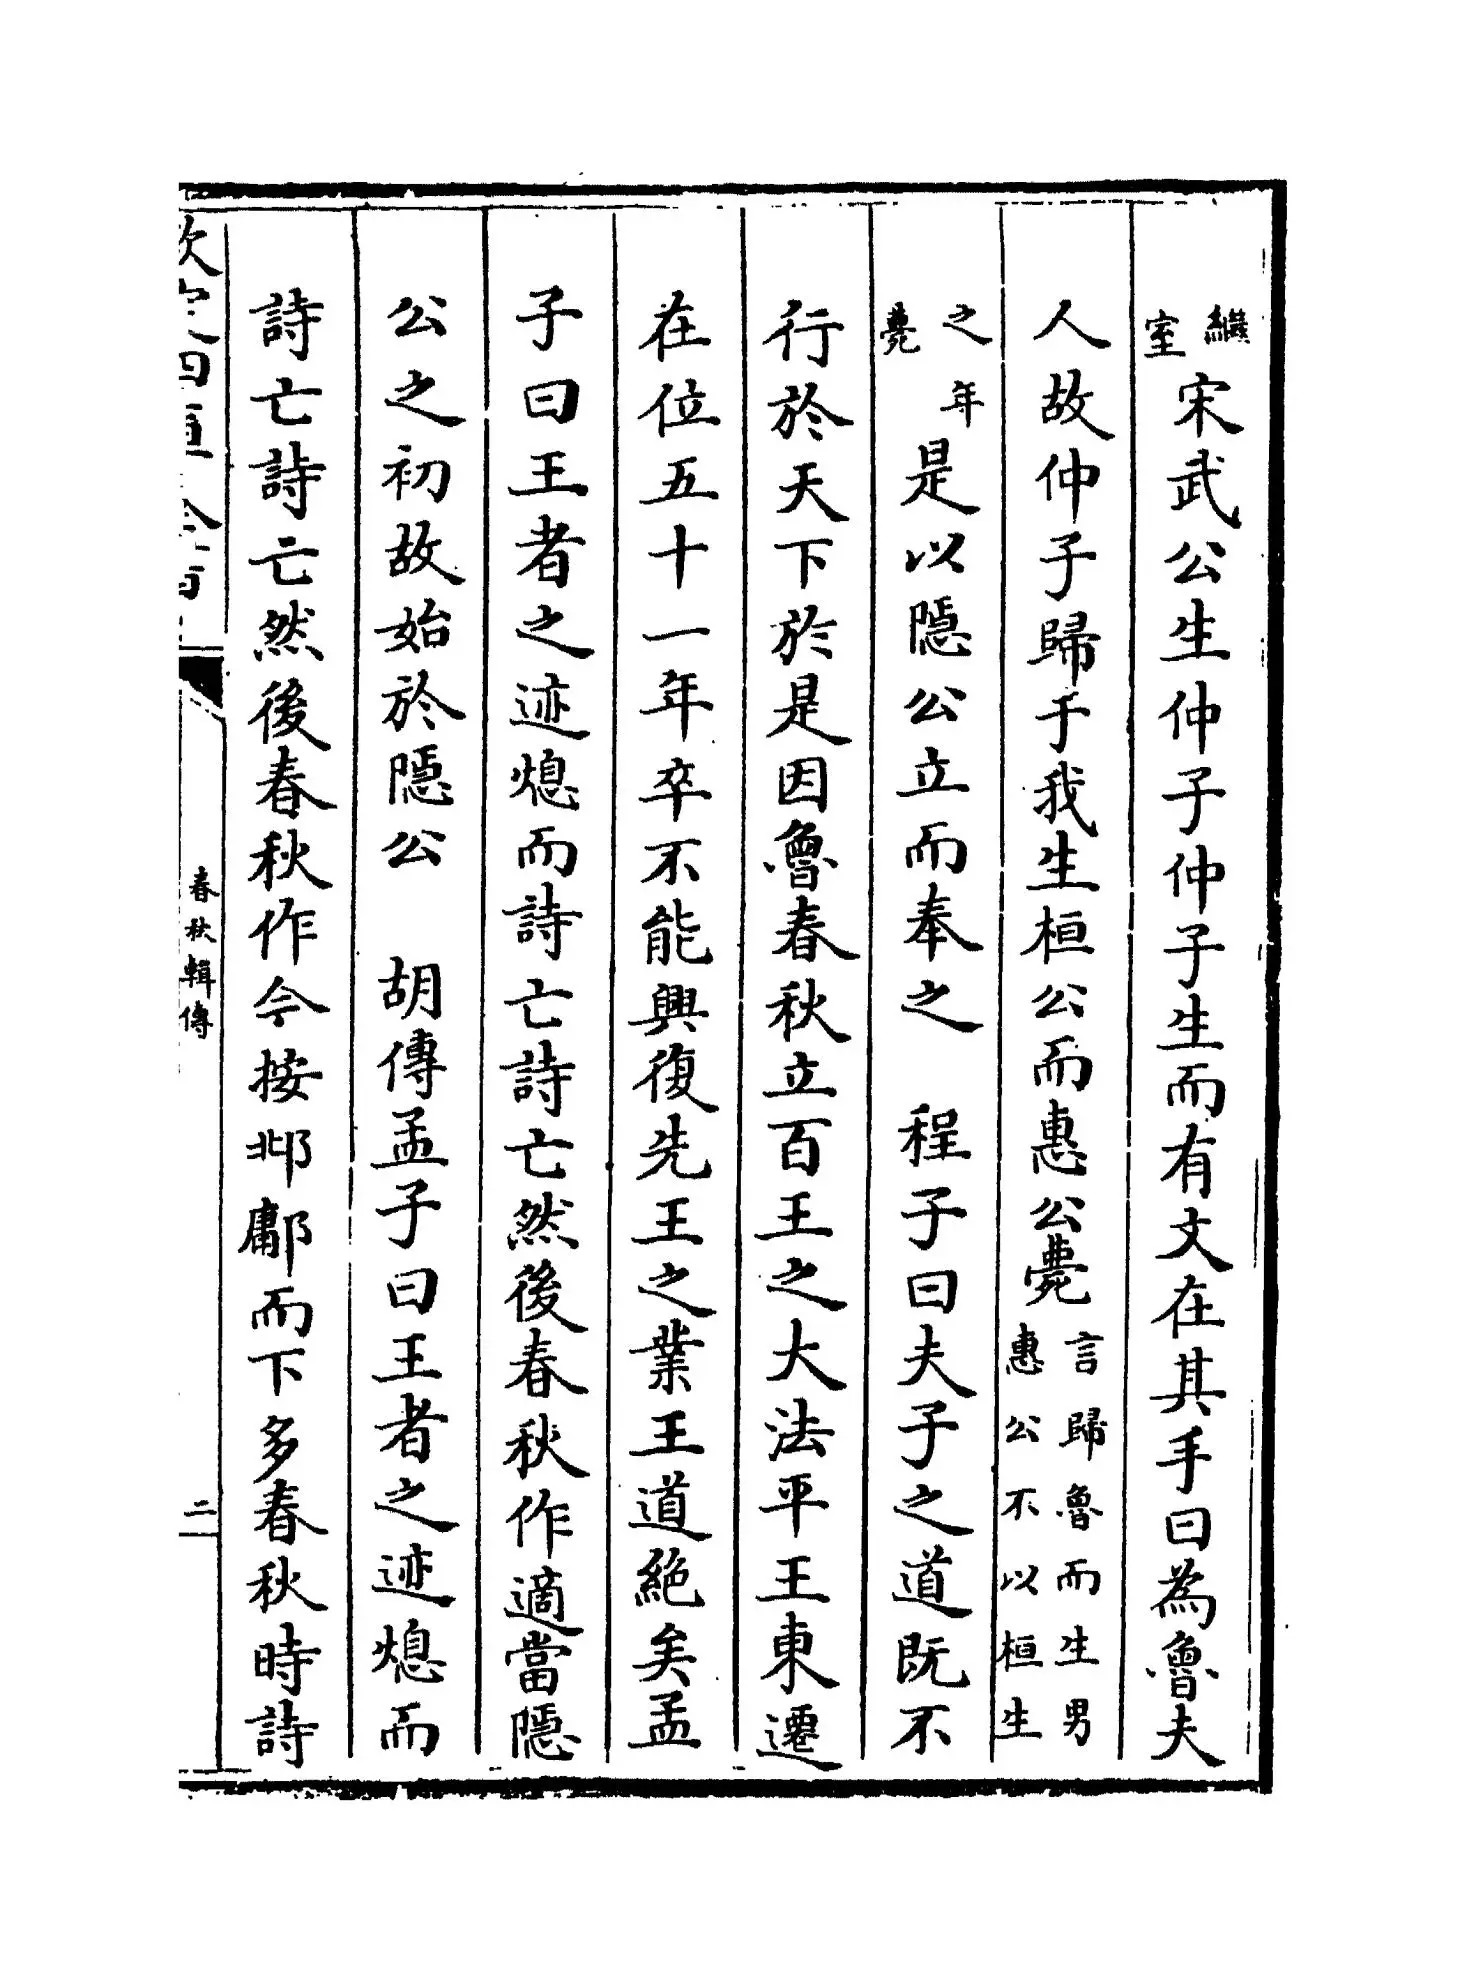 繼室宋武公生仲子仲子生而有文在其手曰為魯夫
人故仲子歸于我生桓公而惠公薨言歸魯而生男惠公不以桓生
之年薨是以隱公立而奉之　程子曰夫子之道既不
行於天下於是因魯春秋立百王之大法平王東遷
在位五十一年卒不能興復先王之業王道絕矣孟
子曰王者之迹熄而詩亡詩亡然後春秋作適當隱
公之初故始於隱公　胡傳孟子曰王者之迹熄而
詩亡詩亡然後春秋作今按邶鄘而下多春秋時詩
欽定四庫全書
春秋輯傳
二